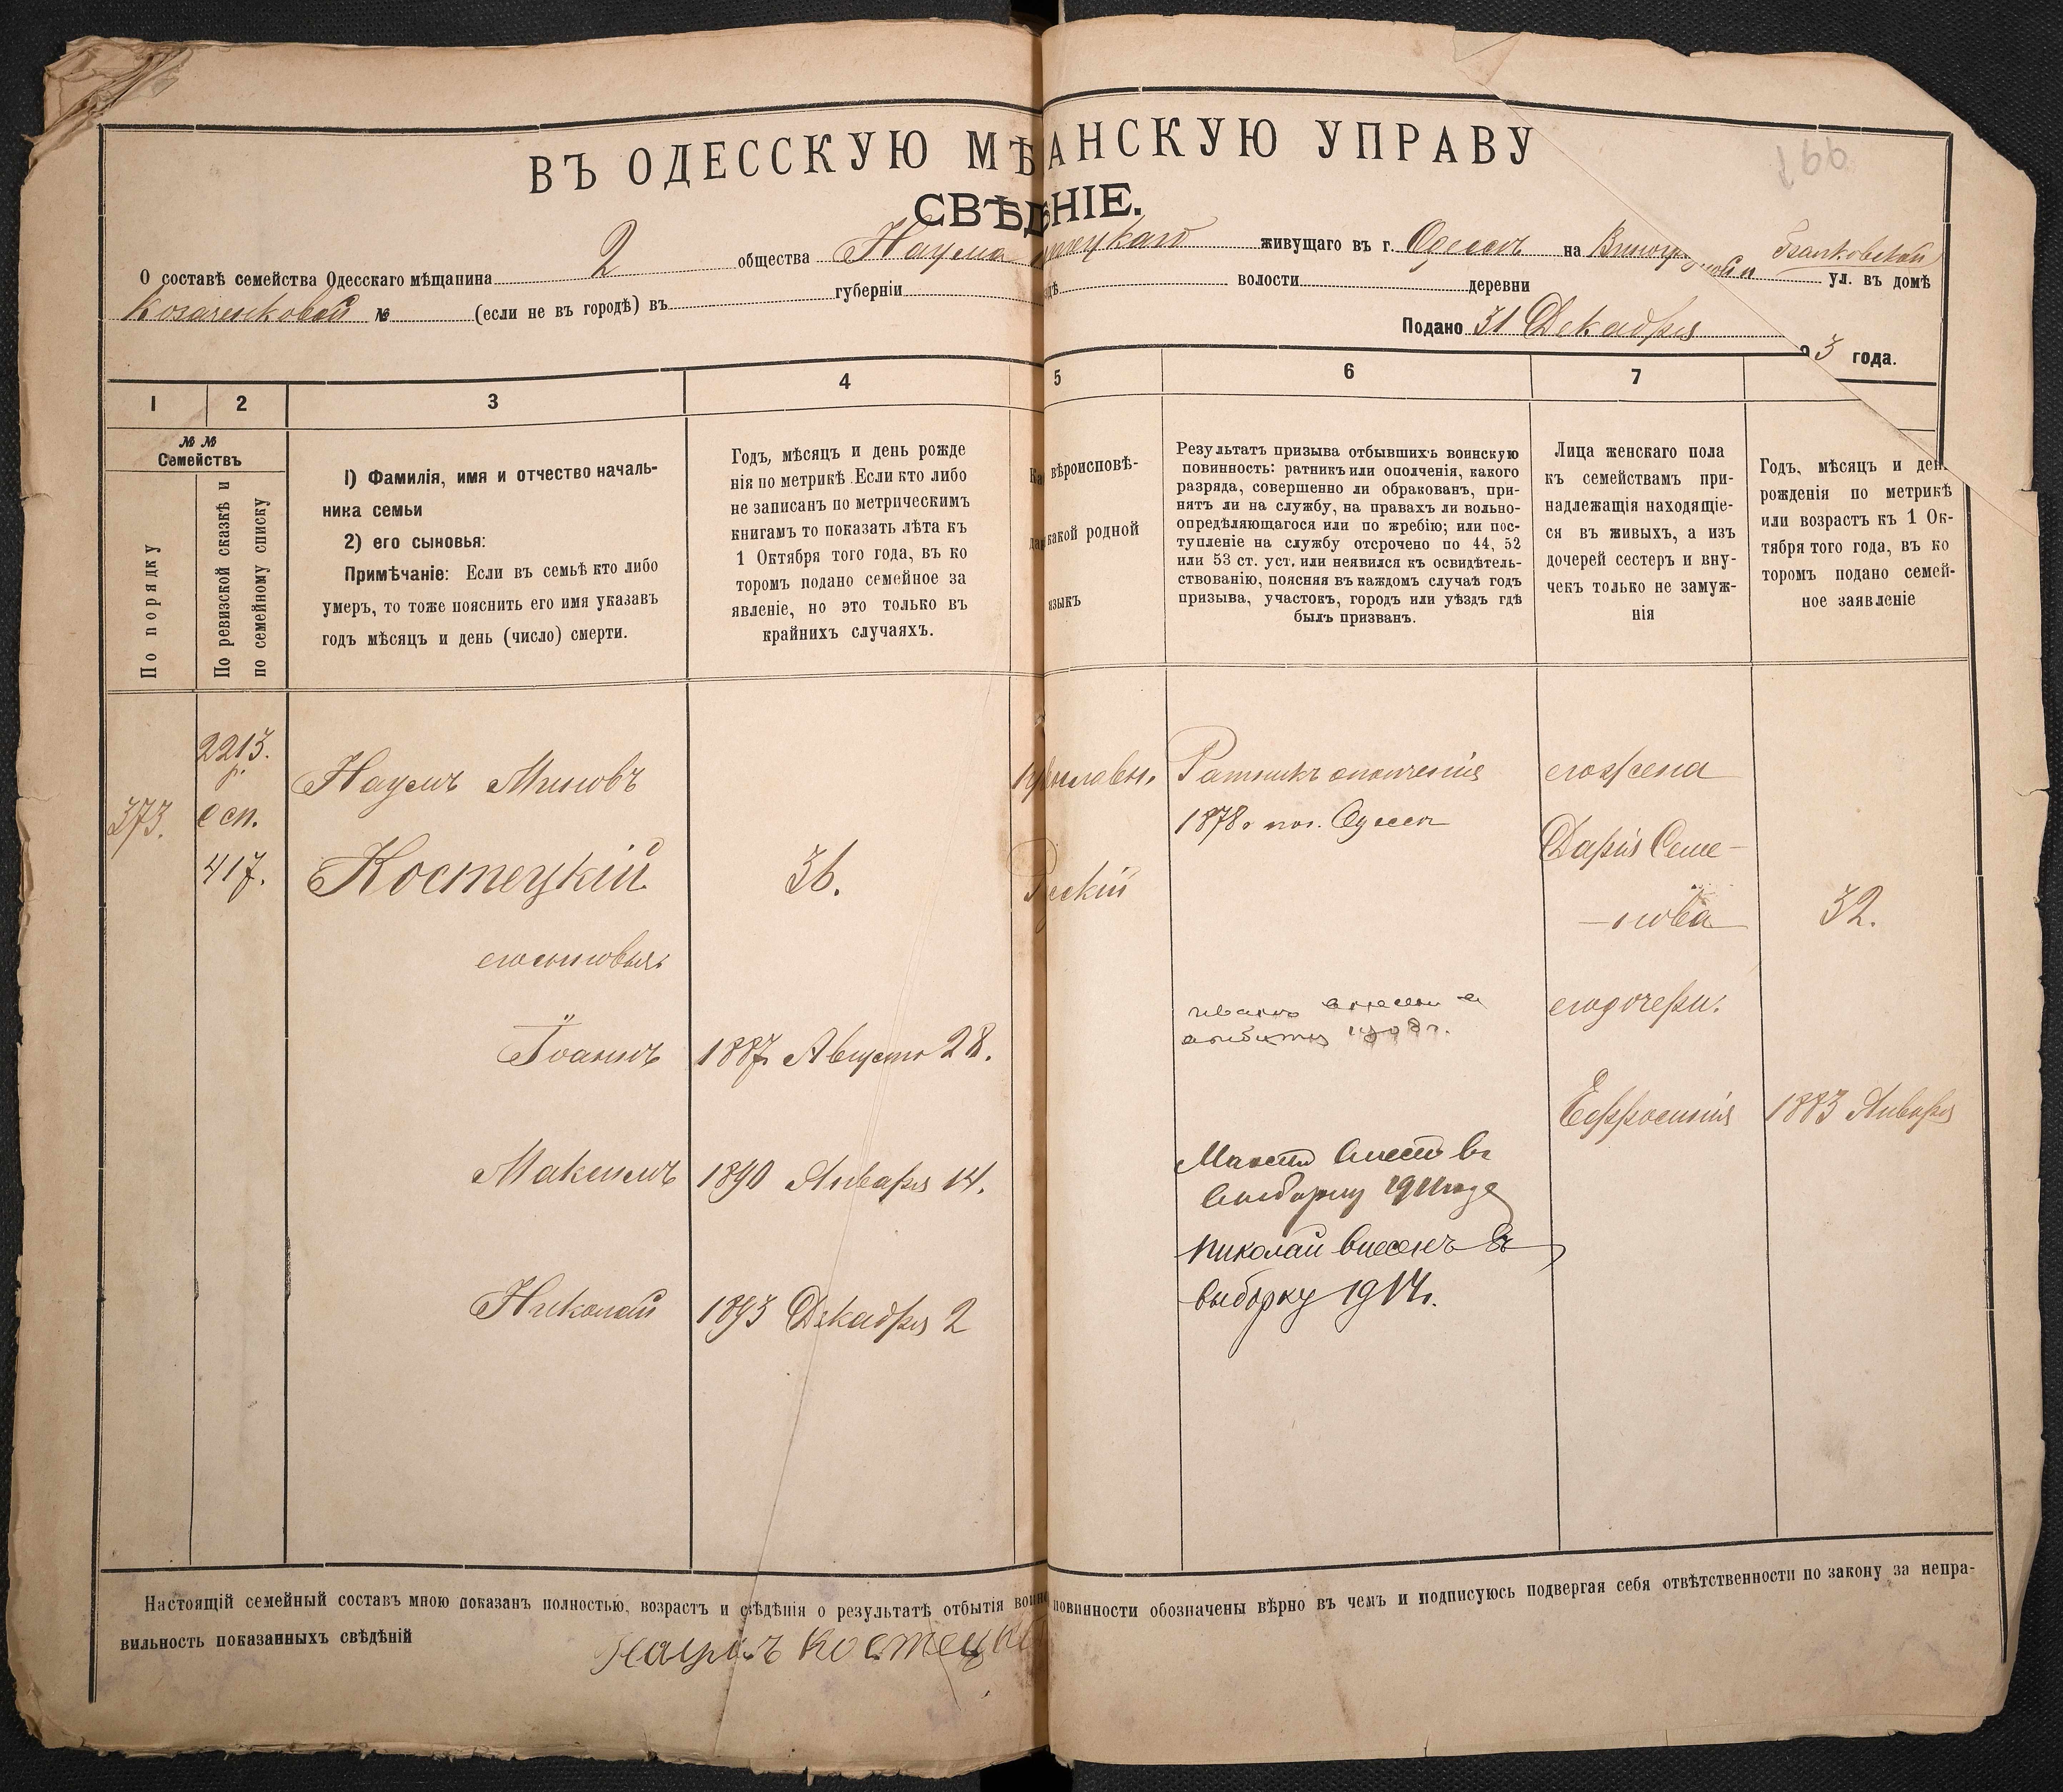 ВЪ ОДЕССКУЮ МѢАНСКУЮ УПРАВУ
СВѢДѢНІЕ.
О составѣ семейства Одесскаго мѣщанина 2 общества Наума живущаго въ г. Одессѣ на ул. въ домѣ
№ (если не въ городѣ) въ губерніи волости деревни
Подано 31 Декабря 3 года.
1 2 3 4 5 6 7
№ №
Семействъ
По порядку
По ревизской сказкѣ и
по семейному списку
1) Фамилія, имя и отчество началь-
ника семьи
2) его сыновья:
Примѣчаніе: Если въ семьѣ кто либо
умеръ, то тоже пояснить его имя указавъ
годъ мѣсяцъ и день (число) смерти.
Годъ, мѣсяцъ и день рожде
нія по метрикѣ. Если кто либо
не записанъ по метрическимъ
книгамъ то показать лѣта къ
1 Октября того года, въ ко
торомъ подано семейное за
явленіе, но это только въ
крайнихъ случаяхъ.
вѣроисповѣ-
какой родной
языкъ
Результатъ призыва отбывшихъ воинскую
повинность: ратникъ или ополченія, какого
разряда, совершенно ли обракованъ, при-
нятъ ли на службу, на правахъ ли вольно-
опредѣляющагося или по жребію; или пос-
тупленіе на службу отсрочено по 44, 52
или 53 ст. уст. или неявился къ освидѣтель-
ствованію, поясняя въ каждомъ случаѣ годъ
призыва, участокъ, городъ или уѣздъ гдѣ
былъ призванъ.
Лица женскаго пола
къ семействамъ при-
надлежащія находящіе-
ся въ живыхъ, а изъ
дочерей сестеръ и вну-
чекъ только не замуж-
нія
Годъ, мѣсяцъ и ден.
рожденія по метрикѣ
или возрастъ къ 1 Ок-
тября того года, въ ко
торомъ подано семей-
ное заявленіе
373.
2213.
р.
с сп.
417.
Наумъ Миновъ
Костецкій
36.
Русскій
Ратникъ ополченія
1878 г. Одесса
его жена
Дарія Семе-
-нова
32.
его сыновья:
его дочери:
Іоаннъ 1887 Августа 28.
1908 г.
Ефросинія 1883 Января
Максимъ 1890 Января 14.
внесенъ въ
выборку 1911 года
Николай 1893 Декабря 2
Николай внесенъ въ
выборку 1914 г.
Настоящій семейный составъ мною показанъ полностью, возрастъ и свѣдѣнія о результатѣ отбытія воинс повинности обозначены вѣрно въ чемъ и подписуюсь подвергая себя отвѣтственности по закону за непра-
вильность показанныхъ свѣдѣній
Наумъ Костецкі